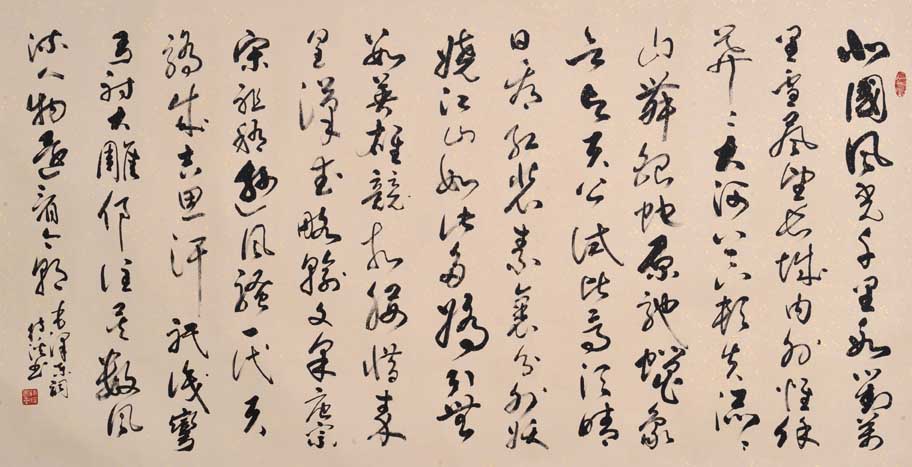 北國風光千里冰封萬
里雪飄望長城內外惟餘
莽〻大河上下頓失滔〻
山舞銀蛇原馳蠟象
欲与天公試比高須晴
日看紅裝素裹分外妖
嬈江山如此多嬌引無
數英雄競折腰惜秦
皇漢武略輸文采唐宗
宋祖稍遜風騷一代天
驕成吉思汗祇識彎
弓射大雕俱往矣數風
流人物還看今朝
毛澤東詞
書